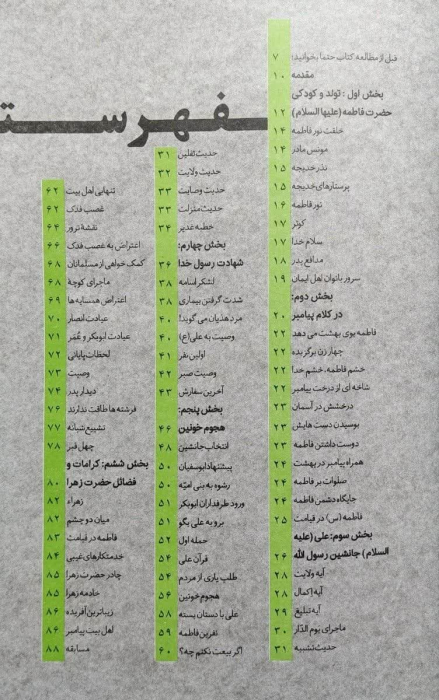 فهرست
قبل از مطالعه کتاب حتما بخوانید: ۷
مقدمه ۱۰
بخش اول: تولد و کودکی
حضرت فاطمه (علیها السلام) ۱۲
خلقت نور فاطمه ۱۴
مونس مادر ۱۴
نذر خدیجه ۱۵
پرستارهای خدیجه ۱۵
نور فاطمه ۱۶
کوثر ۱۷
سلام خدا ۱۷
مدافع پدر ۱۸
سرور بانوان اهل ایمان ۱۹
بخش دوم:
در کلام پیامبر ۲۰
فاطمه بوی بهشت می دهد ۲۲
چهار زن برگزیده ۲۲
خشم فاطمه، خشم خدا ۲۲
شاخه ای از درخت پیامبر ۲۲
درخشش در آسمان ۲۳
بوسیدن دست هایش ۲۳
دوست داشتن فاطمه ۲۳
همراه پیامبر در بهشت ۲۴
صلوات بر فاطمه ۲۴
جایگاه دشمن فاطمه ۲۴
فاطمه (س) در قیامت ۲۵
بخش سوم: علی (علیه
السلام) جانشین رسول الله ۲۶
آیه ولایت ۲۸
آیه إکمال ۲۸
آیه تبلیغ ۲۹
ماجرای یوم الدّار ۳۰
حدیث تشبیه ۳۱
حدیث ثقلین ۳۱
حدیث ولایت ۳۲
حدیث وصایت ۳۳
حدیث منزلت ۳۳
خطبه غدیر ۳۴
بخش چهارم:
شهادت رسول خدا ۳۶
لشکر اسامه ۳۸
شدت گرفتن بیماری ۳۸
مرد هذیان می گوید! ۴۰
وصیت به علی(ع) ۴۰
اولین نفر ۴۱
وصیت صبر ۴۲
آخرین سفارش ۴۳
بخش پنجم:
هجوم خونین ۴۶
انتخاب جانشین ۴۸
پیشنهاد ابوسفیان ۵۰
رشوه به بنی امیّه ۵۰
ورود طرفداران ابوبکر ۵۱
برو به علی بگو ۵۱
حمله اول ۵۲
قرآن علی ۵۴
طلب یاری از مردم ۵۴
هجوم خونین ۵۶
علی با دستان بسته ۵۸
نفرین فاطمه ۵۹
اگر بیعت نکنم چه؟ ۶۰
تنهایی اهل بیت ۶۲
غصب فدک ۶۲
نقشهٔ ترور ۶۴
اعتراض به غصب فدک ۶۶
کمک خواهی از مسلمانان ۶۸
ماجرای کوچه ۶۸
اعتراض همسایه ها ۶۹
عیادت انصار ۷۰
عیادت ابوبکر و عُمَر ۷۱
لحظات پایانی ۷۲
وصیت ۷۳
دیدار پدر ۷۴
فرشته ها طاقت ندارند ۷۶
تشییع شبانه ۷۷
چهل قبر ۷۸
بخش ششم: کرامات و
فضائل حضرت زهرا ۸۰
زهراء ۸۲
میان دو چشم ۸۲
فاطمه در قیامت ۸۳
خدمتکارهای غیبی ۸۴
چادر حضرت زهرا ۸۵
خادمه زهرا ۸۵
زیباترین آفریده ۸۶
اهل بیت پیامبر ۸۶
مسابقه ۸۸